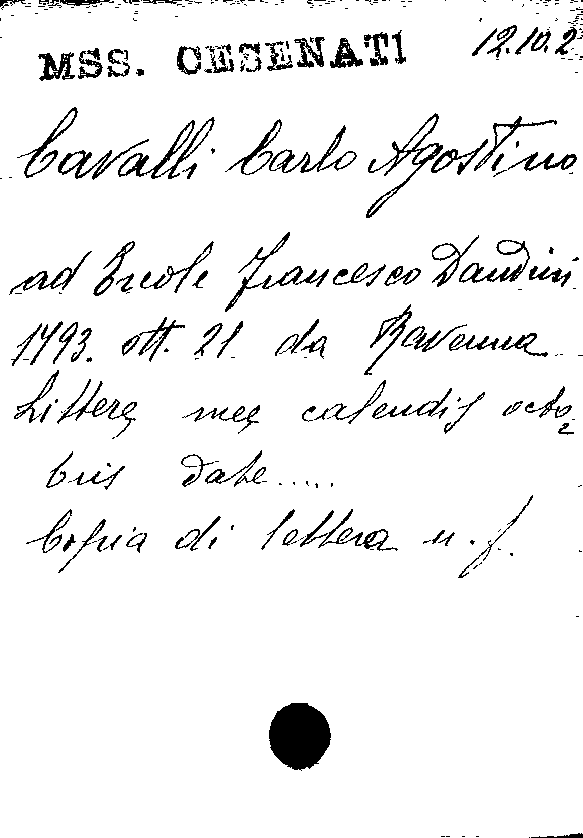 MSS. CESENATI 12.10.2
Cavalli Carlo Agostino
ad Ercole Francesco Dandini
1793. ott. 21 da Ravenna
Litterę meę calendis octo
bris date.....
Copia di lettera n. f.